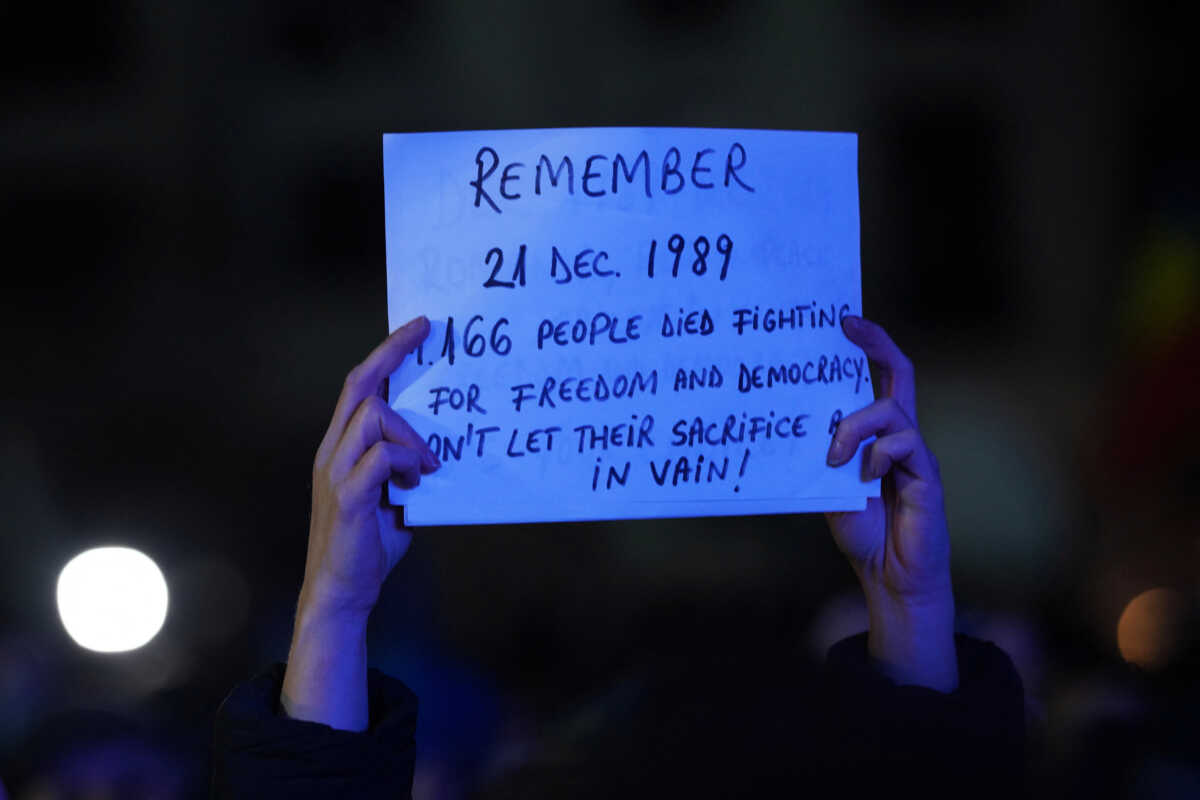 REMEMBER
21 DEC. 1989
1.166 PEOPLE DIED FIGHTING
FOR FREEDOM AND DEMOCRACY.
DON'T LET THEIR SACRIFICE
IN VAIN!